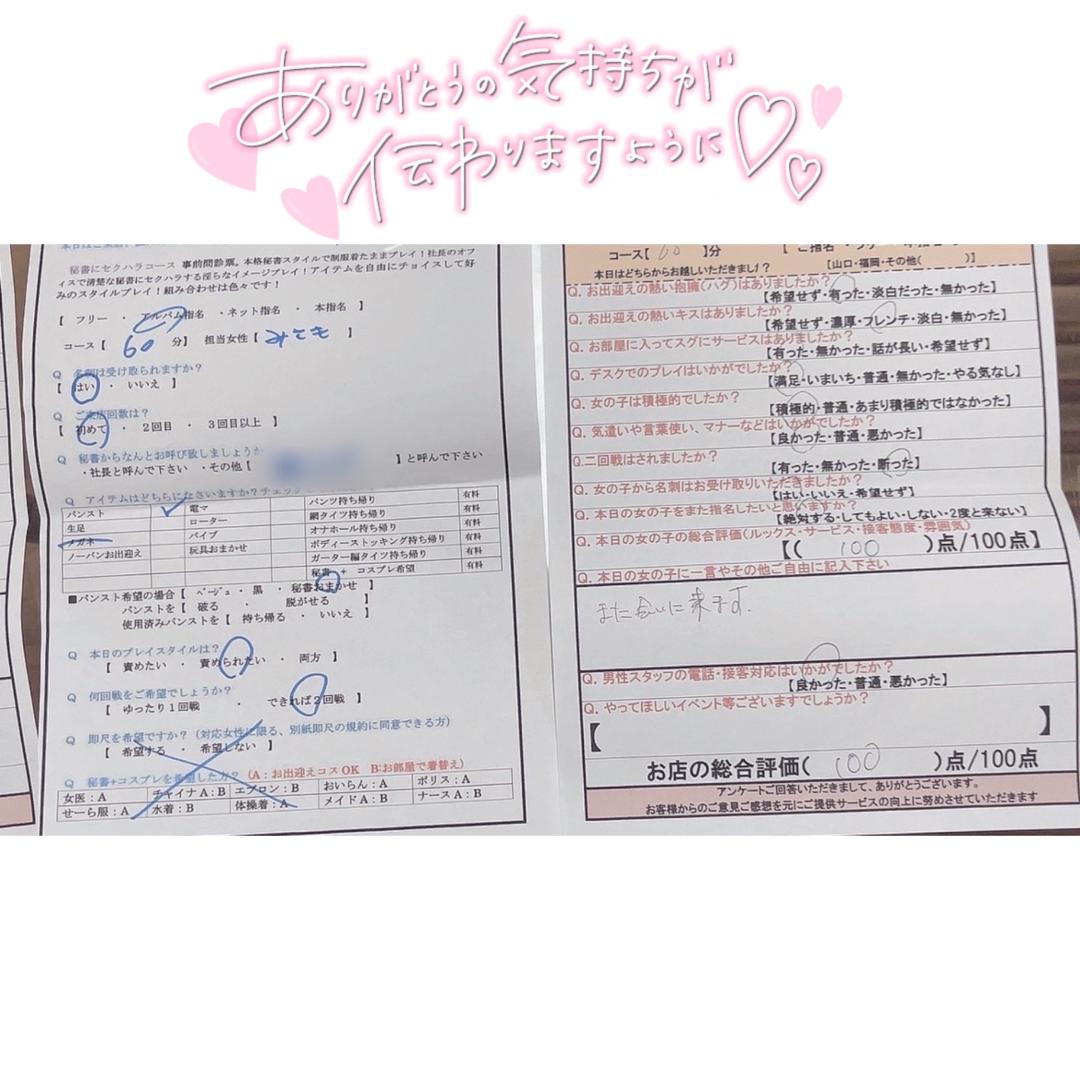 ありがとうの気持ちが
伝わりますように♡♡
秘書にセクハラコース 事前問診票。本格秘書スタイルで制服着たままプレイ！社長のオフ
ィスで清楚な秘書にセクハラする淫らなイメージプレイ！アイテムを自由にチョイスして好
みのスタイルプレイ！組み合わせは色々です！
【 フリー ・ アルバム指名 ・ネット指名 ・ 本指名 】
コース【 60 分】 担当女性【 】
Q 名刺は受け取られますか？
【 はい ・ いいえ 】
Q ご来店回数は？
【 初めて ・ 2回目 ・ 3回目以上 】
Q 秘書からなんとお呼び致しましょうか
・社長と呼んで下さい ・その他【 】と呼んで下さい
Q アイテムはどちらになさいますか？チェック
パンスト 電マ パンツ持ち帰り 有料
生足 ローター 網タイツ持ち帰り 有料
メガネ バイブ オナホール持ち帰り 有料
ノーパンお出迎え 玩具おまかせ ボディーストッキング持ち帰り 有料
ガーター網タイツ持ち帰り 有料
秘書 + コスプレ希望 有料
■パンスト希望の場合【 ベージュ・ 黒 ・ 秘書おまかせ 】
パンストを【 破る ・ 脱がせる 】
使用済みパンストを【 持ち帰る ・ いいえ 】
Q 本日のプレイスタイルは？
【 責めたい ・ 責められたい ・ 両方 】
Q 何回戦をご希望でしょうか？
【 ゆったり1回戦 ・ できれば2回戦 】
Q 即尺を希望ですか？（対応女性に限る、別紙即尺の規約に同意できる方）
【 希望する ・ 希望しない 】
Q 秘書+コスプレを希望した方？（A：お出迎えコスOK B:お部屋で着替え）
女医：A チャイナA：B エプロン：B おいらん：A ポリス：A
せーら服：A 水着：B 体操着：A メイドA：B ナースA：B
コース【 60 】分
本日はどちらからお越しいただきましたか？ 【山口・福岡・その他( )】
Q. お出迎えの熱い抱擁(ハグ)はありましたか？
【希望せず・有った・淡白だった・無かった】
Q. お出迎えの熱いキスはありましたか？
【希望せず・濃厚・フレンチ・淡白・無かった】
Q. お部屋に入ってスグにサービスはありましたか？
【有った・無かった・話が長い・希望せず】
Q. デスクでのプレイはいかがでしたか？
【満足・いまいち・普通・無かった・やる気なし】
Q. 女の子は積極的でしたか？
【積極的・普通・あまり積極的ではなかった】
Q. 気遣いや言葉使い、マナーなどはいかがでしたか？
【良かった・普通・悪かった】
Q.二回戦はされましたか？
【有った・無かった・断った】
Q. 女の子から名刺はお受け取りいただきましたか？
【はい・いいえ・希望せず】
Q. 本日の女の子をまた指名したいと思いますか？
【絶対する・してもよい・しない・2度と来ない】
Q. 本日の女の子の総合評価(ルックス・サービス・接客態度・雰囲気)
【( 100 )点/100点】
Q. 本日の女の子に一言やその他ご自由に記入下さい
また会いに来ます.
Q. 男性スタッフの電話・接客対応はいかがでしたか？
【良かった・普通・悪かった】
Q. やってほしいイベント等ございますでしょうか？
【 】
お店の総合評価( 100 )点/100点
アンケートご回答いただきまして、ありがとうございます。
お客様からのご意見ご感想を元にご提供サービスの向上に努めさせていただきます